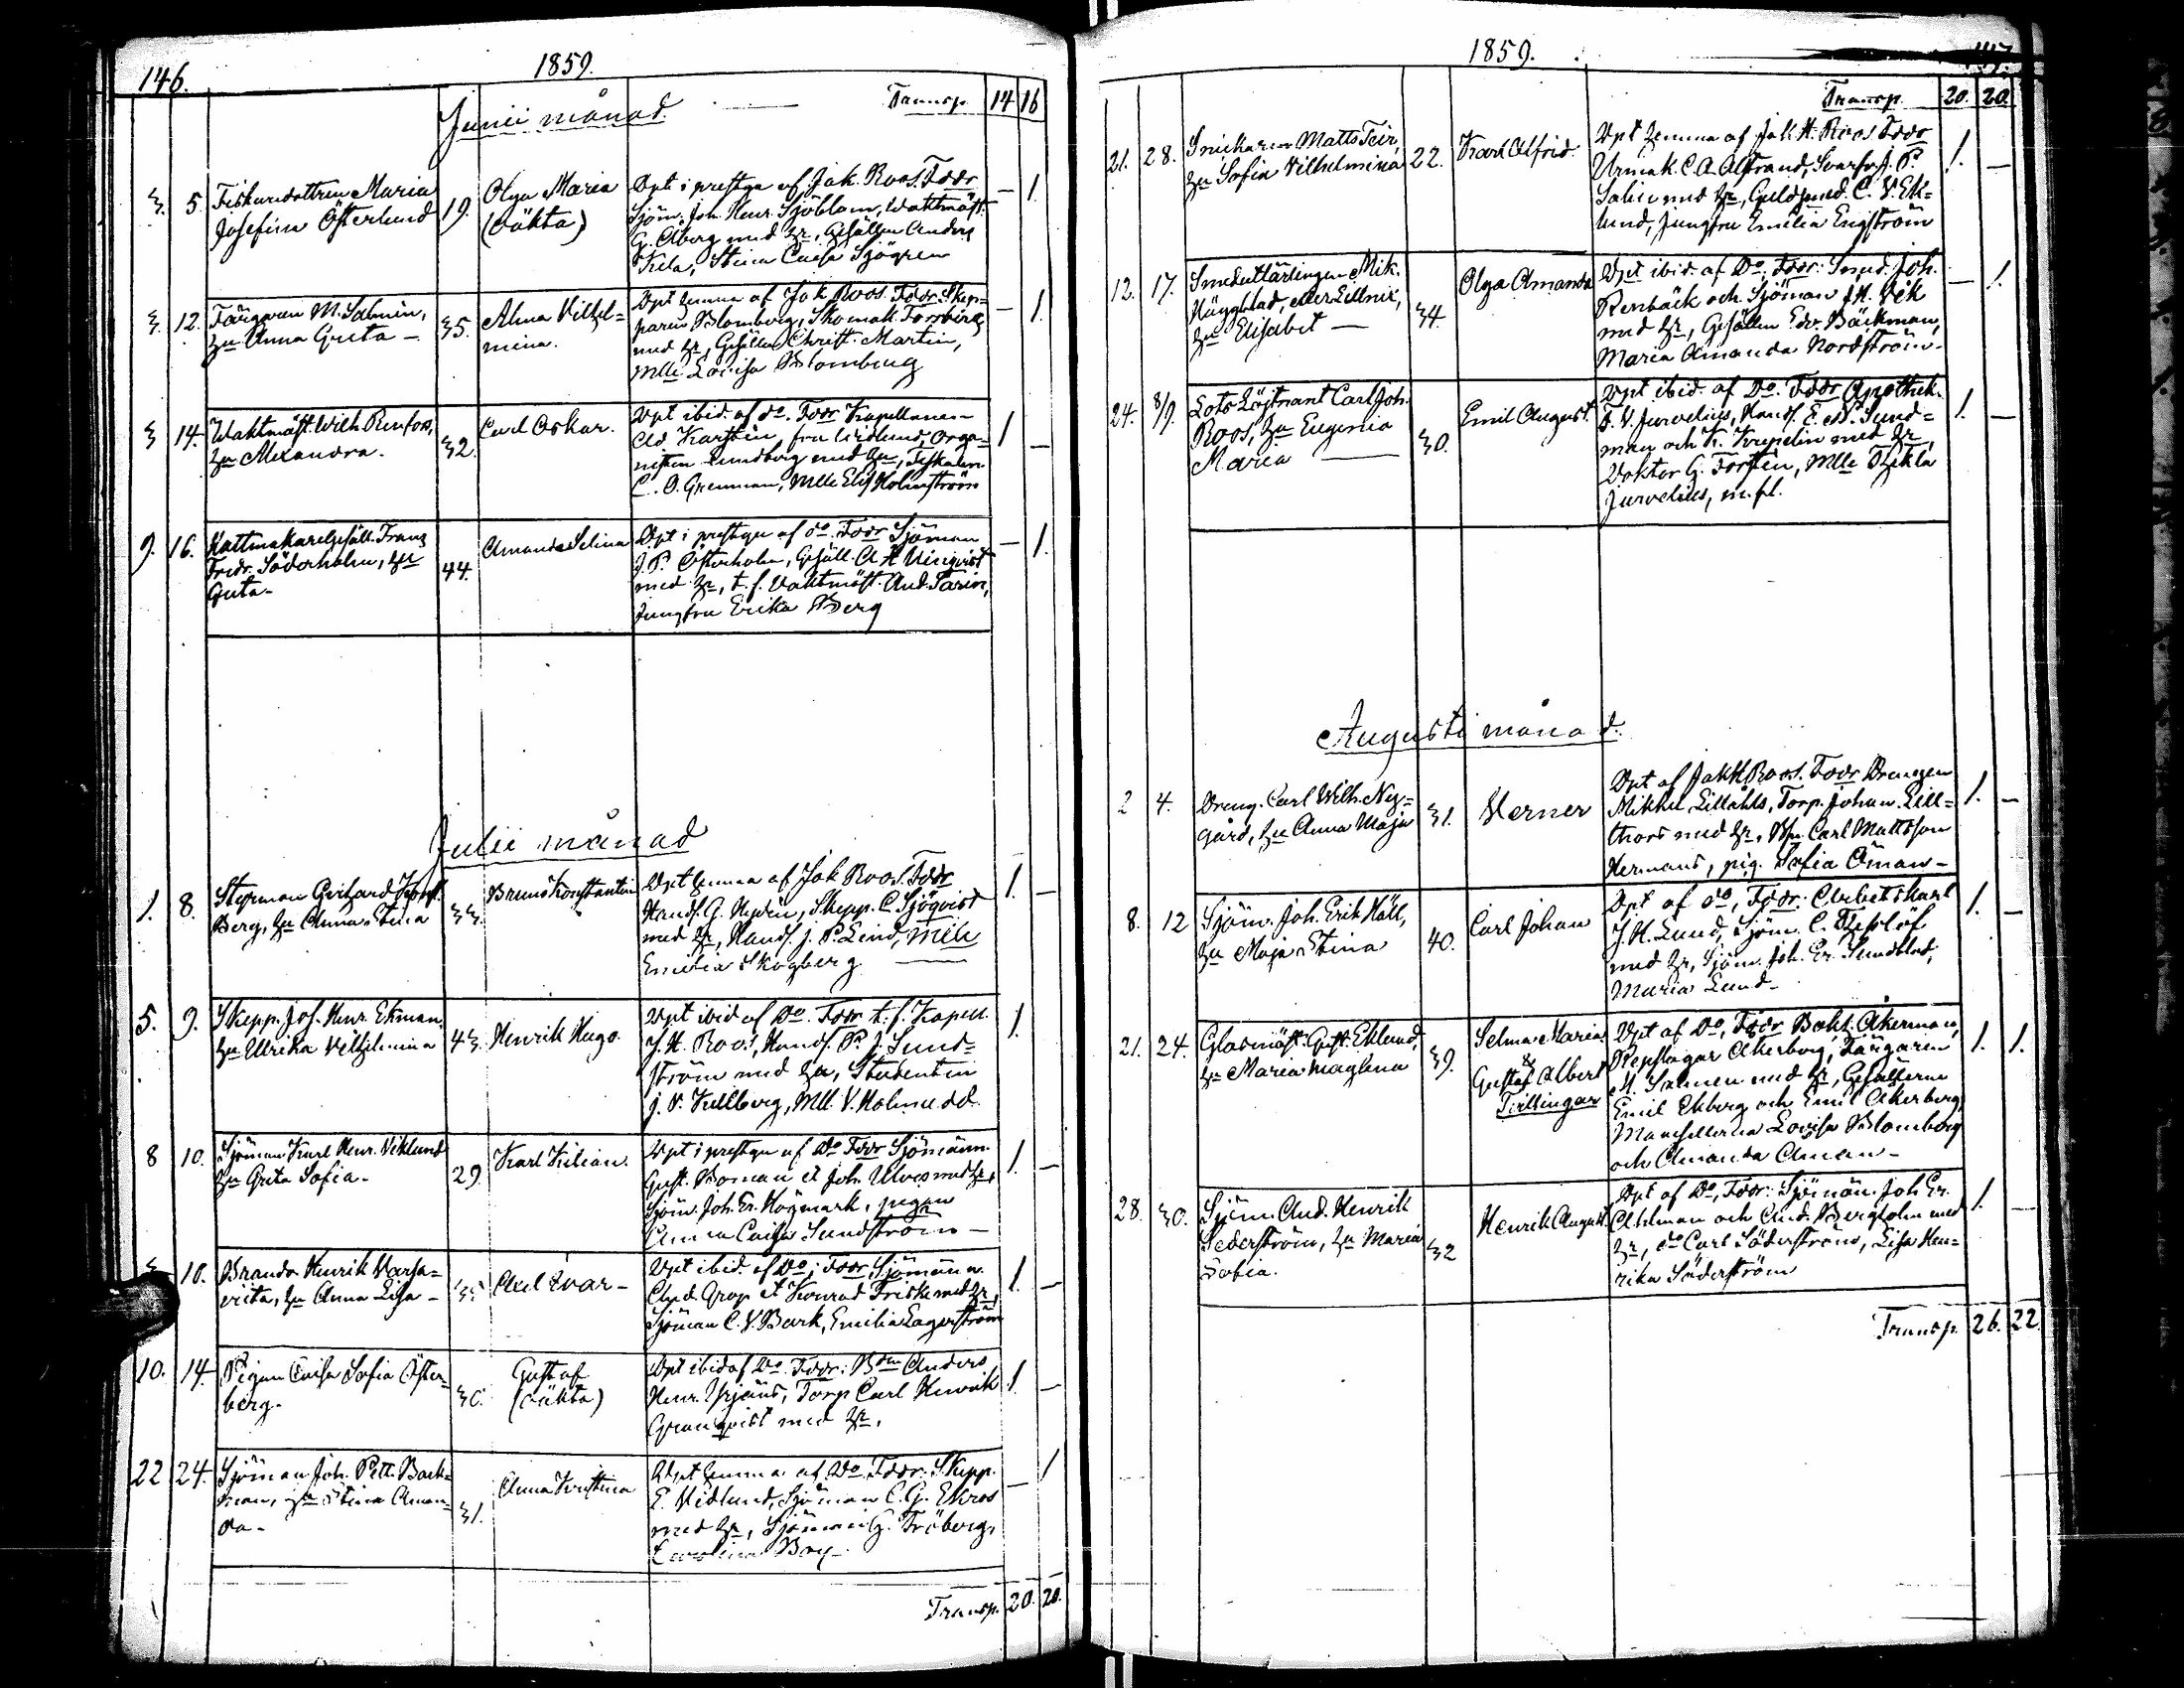 146.
1859.
Junii månad.
Transp. 14 16
3. 5. Fiskaredottren Maria
Josefina Österlund
19.
Olga Maria
(oäkta)
Dpt i prestgn af Jak. Roos. Fddr
Sjöm. Joh. Henr. Sjöblom, Waktmäst.
G. Åberg med hu, Gesällen Anders
Stina Caisa Sjögren
— 1.
3. 12. Färgaren M. Salmén,
hu Anna Greta —
35.
Alma Vilhel=
mina.
Dpt hemma af Jak Roos. Fddr: Skep=
paren Blomberg, Skomak. Forsberg
med hr, Gesällen Christ. Martin,
Mlle Lovisa Blomberg
— 1.
3 14. Waktmäst. Wilh. Renfors,
hu Alexandra.
32.
Carl Oskar.
Dpt ibid. af do. Fddr Kapellanen
Ad Karsten, fru Widlund, Orga=
nisten Lundberg med hu, Fiskalen
C. O. Grenman, Mlle Elis Holmström
1 —
9. 16. Hattmakaregesäll. Franz
Fredr. Söderholm, hu
Greta —
44.
Amanda Selina
Dpt i prestgn af do. Fddr Sjöman
J. P. Österholm, Gesäll. A H Uinqvist
med hr, t. f. Vaktmäst. And. Sarin,
Jungfru Erika Berg
— 1.
Julii månad
1. 8. Styrman Gerhard Konst.
Berg, hu Anna Stina
33.
Bruno Konstantin
Dpt hemma af Jak Roos. Fddr
Handl. G. Hedén, Skepp. C. Sjöqvist
med hr, Handl. J. P. Lind, Mlle
Emilia Skogberg
1. —
5. 9. Skepp. Jos. Henr. Ekman,
hu Ulrika Vilhelmina
43.
Henrik Hugo.
Dpt ibid af Do. Fddr t. f. Kapell.
J. H. Roos, Handl. P. J. Sund=
ström med hu, Studenten
J. V. Kullberg, Mll. V. Holm
1.
8 10. Sjöman Karl Henr. Viklund
hu Greta Sofia.
29.
Karl Kilian.
Dpt i prestgn af Do Fddr Sjömänn.
Gust. Boman et Joh. Ulves med hr,
Sjöm. Joh. Er. Högmark, pigan
Anna Caisa Sundström —
1. —
10. Brandv Henrik Varsa=
vita, hu Anna Lisa —
35.
Axel Evar —
Dpt ibid. af Do; Fddr Sjömänn.
And. Grop et Konrad Friske med hr,
Sjöman C. V. Bark, Emilia Lagerström
1. —
10. 14. Pigan Caisa Sofia Öster=
berg.
30.
Gustaf
(oäkta)
Dpt ibid af Do. Fddr: Bdn Anders
Henr. Yrjans, Torp Carl Henrik
Granqvist med hr.
1. —
22 24. Sjöman Joh. Pett. Back=
man, hu Stina Aman=
da —
31.
Anna Kristina
Dpt hemma af Do. Fddr: Skepp.
E. Vidlund, Sjöman C. G. Ekros
med hr, Sjöman G. Fröberg,
Carolina Boy —
— 1
Transp. 20. 20.
1859.
147.
Transp. 20. 20.
21. 28. Snickaren Matts Teir,
hu Sofia Vilhelmina
22.
Karl Alfrid.
Dpt hemma af Jak H. Roos Fddr
Urmak. C. A. Alstrand, Svarfv. J. P.
Salin med hr, Guldsmed. C. V. Ek=
lund, Jungfru Emilia Engström
1. —
12. 17. Smedutlärlingen Mik.
Häggblad, eller Lillnix,
hu Elisabet —
34.
Olga Amanda
Dpt ibid. af Do, Fddr: Smed. Joh.
Renbäck och Sjöman J. H. Vik
med hr, Gesällen Edv. Bäckman,
Maria Amanda Nordström.
— 1.
24. 8/9. Lots Löjtnant Carl Joh.
Roos, hu Eugenia
Maria —
30.
Emil August.
Dpt ibid. af Do. Fddr Apothek.
F. V. Jurvelius, Handl. E. N. Sund=
man och K. Krepelin med hr,
Doktor G. Forstén, Mlle Thekla
Jurvelius, m. fl.
1. —
Augusti månad.
2 4. Dreng. Carl Wilh. Ny=
gård, hu Anna Maja
31.
Verner
Dpt af Jak H Roos. Fddr Drengen
Mikkel Lillåhls, Torp. Johan Lill=
thors med hr, Bn Carl Mattsson
Hermans, pig. Sofia Öman —
1. —
8. 12 Sjöm. Joh. Erik Häll,
hu Maja Stina
40.
Carl Johan
Dpt af do, Fddr: Arbetskarl
J. H. Lund, Sjöm. C. Thesslöf
med hr, Sjöm. Joh. Er. Sundblad,
Maria Lund —
1. —
21. 24. Glasmäst. Gust. Eklund,
hu Maria Maglena
39.
Selma Maria
&
Gustaf Albert
Tvillingar
Dpt af Do, Fddr Bokh. Åkerman,
Repslagar Åkerberg, Färgaren
M. Salmen med hr, Gesällerne
Emil Ekberg och Emil Åkerberg,
Mamsellerna Lovisa Blomberg
och Amanda Åman —
1. 1.
28. 30. Sjöm. And. Henrik
Sederström, hu Maria
Sofia.
32
Henrik August.
Dpt af Do, Fddr: Sjömän. Joh Er.
Ahlman och And. Bergholm med
hr, do Carl Söderström, Lisa Hen=
rika Söderström
1. —
Transp. 26. 22.